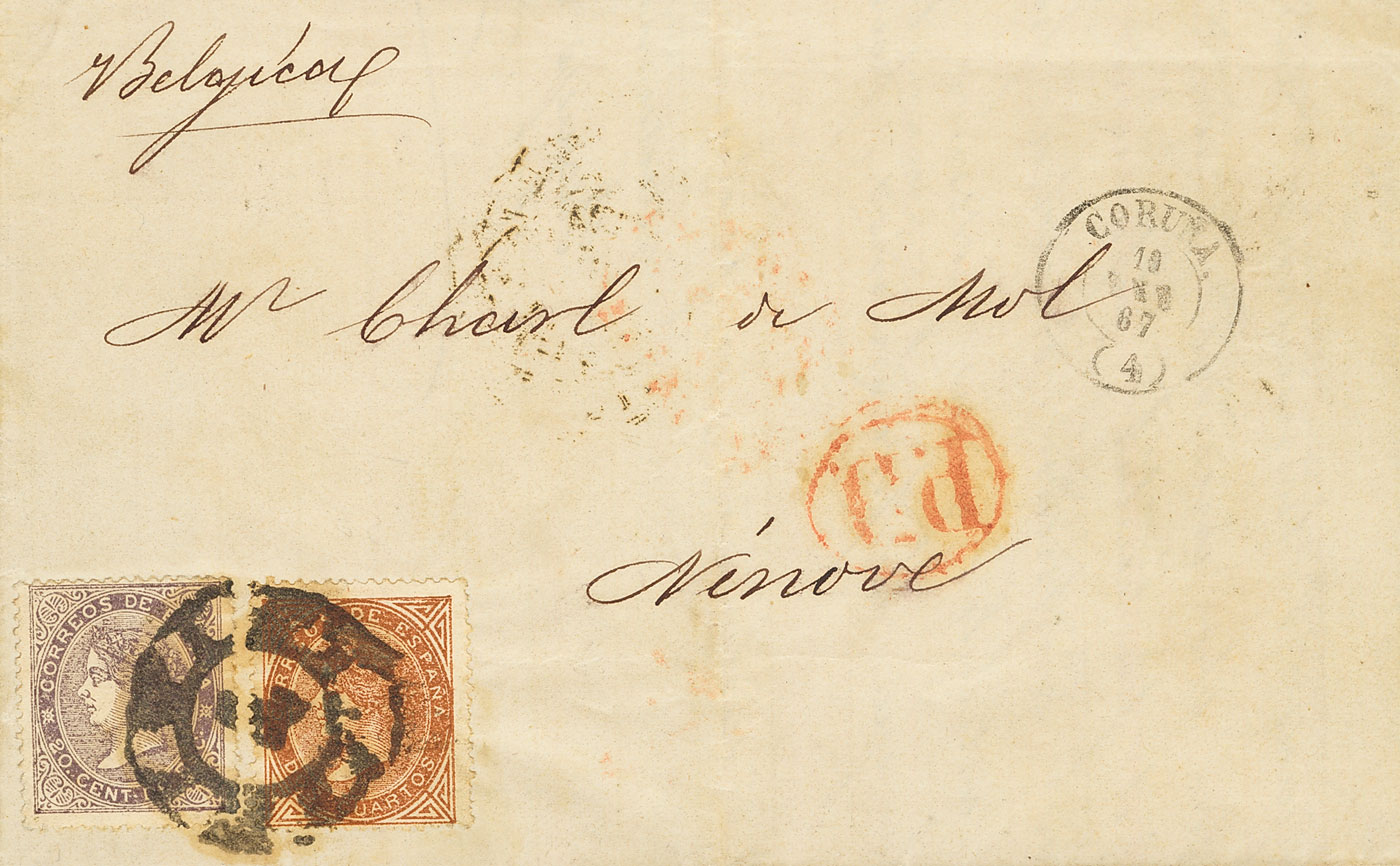 Belgica
Mr Charl de Mol
CORUÑA.
19
ENE
67
(4)
P.D
Ninove
CORREOS DE
20. CENT.
DE ESPAÑA
CUARTOS